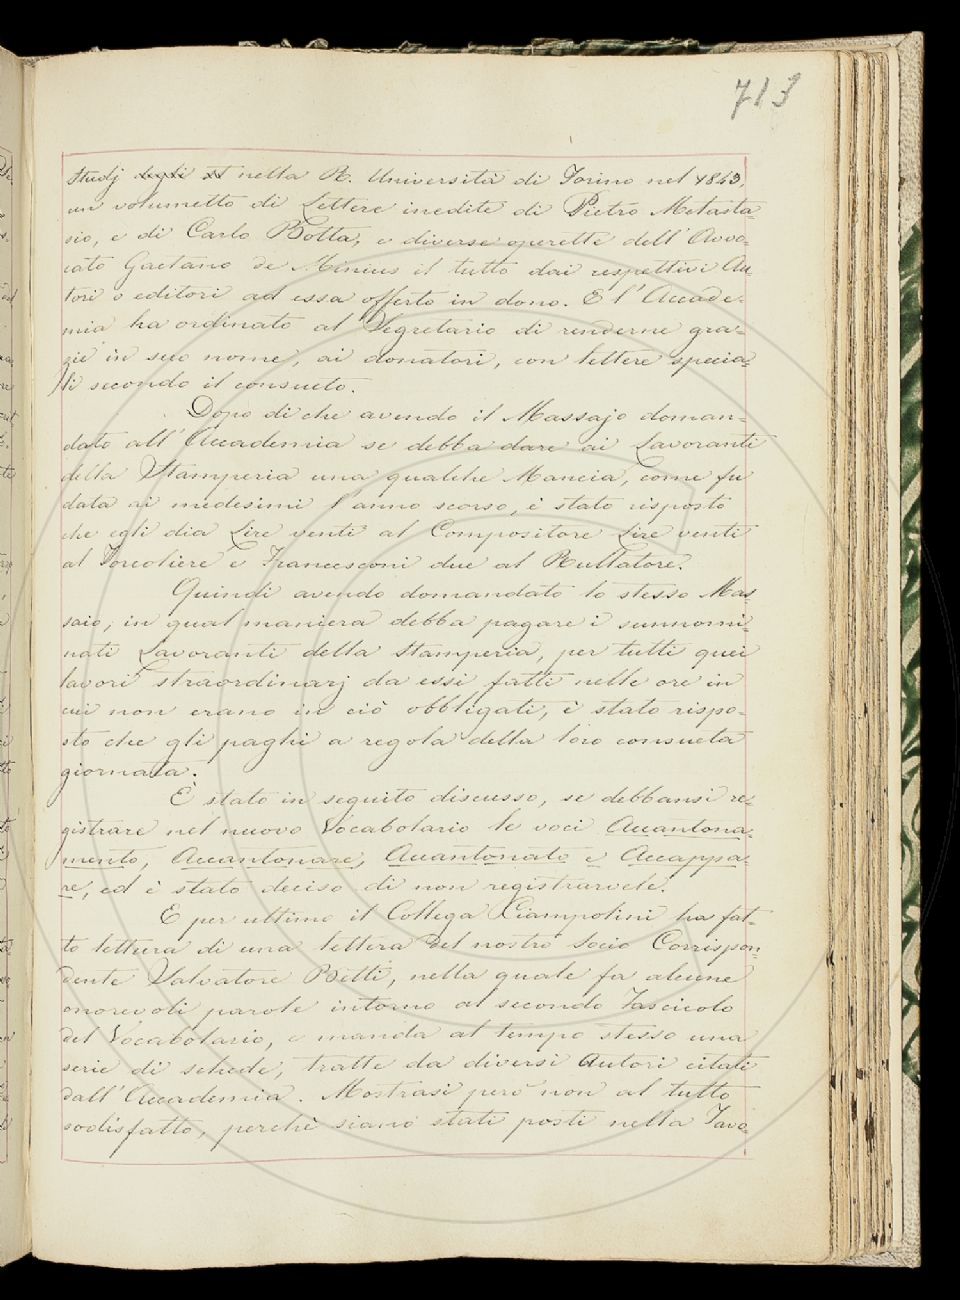 713
Studj degli st nella R. Università di Torino nel 1843,
un volumetto di Lettere inedite di Pietro Metasta=
sio, e di Carlo Botta, e diverse operette dell'Avvo=
cato Gaetano de Minicis il tutto dai respettivi Au=
tori o editori ad essa offerto in dono. E l'Accade=
mia ha ordinato al Segretario di renderne gra=
zie in suo nome, ai donatori, con lettere specia=
li secondo il consueto.
Dopo di che avendo il Massajo doman=
dato all'Accademia se debba dare ai Lavoranti
della Stamperia una qualche Mancia, come fu
data ai medesimi l'anno scorso, è stato risposto
che egli dia Lire venti al Compositore Lire venti
al Torcoliere e Francesconi due al Rullatore.
Quindi avendo domandato lo stesso Mas=
saio, in qual maniera debba pagare i sunnomi=
nati Lavoranti della Stamperia, per tutti quei
lavori straordinarj da essi fatti nelle ore in
cui non erano in ciò obbligati, è stato rispo=
sto che gli paghi a regola della loro consueta
giornata.
È stato in seguito discusso, se debbansi re=
gistrare nel nuovo Vocabolario le voci Accantona=
mento, Accantonare, Accantonato e Accappa=
re, ed è stato deciso di non registrarvele.
E per ultimo il Collega Ciampolini ha fat=
to lettura di una lettera del nostro Socio Corrispon=
dente Salvatore Betti, nella quale fa alcune
onorevoli parole intorno al secondo Fascicolo
del Vocabolario, e manda al tempo stesso una
serie di schede, tratte da diversi Autori citati
dall'Accademia. Mostrasi però non al tutto
sodisfatto, perchè siano stati posti nella Tavo=